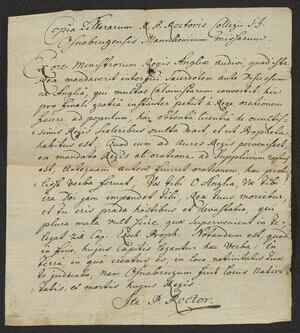 Copia Litterarum R. P. Rectoris Collegii S. J.
Osnabrugensis Hannoveranum missarum.
Fere Ministrorum Regis Angliæ audivi quod iste
Rex mandaverit interfici Sacerdotem ante Discessum
in Anglia, qui multos Calvinistarum convertit hic
pro finali gratia instanter petiit à Rege orationem
facere ad populum, hac obtenta licentia de occultis-
simis Regis sceleribus multa dixit, et ut Propheta
habitus est. Quod cum ad Aures Regis pervenisset,
ex mandato Regis ab oratione ad supplicium raptus
est, Antequam autem finiret orationem hæc pro-
lixè verba format, Væ tibi O Anglia, Væ tibi
ira Dei jam impendet tibi, Rex tuus morietur,
et tu eris præda hostibus et devastatio,
plura mala vid
legat Cap: Proph. Notandum est, quod
in fine hujus Capitis legantur hæc Verba: In
terra, in quâ creatus es, in loco nativitatis tuæ
te judicabo, nam Osnabrugum fuit locus Nativi-
tatis, et mortis hujus Regis
Ita P. Rector.